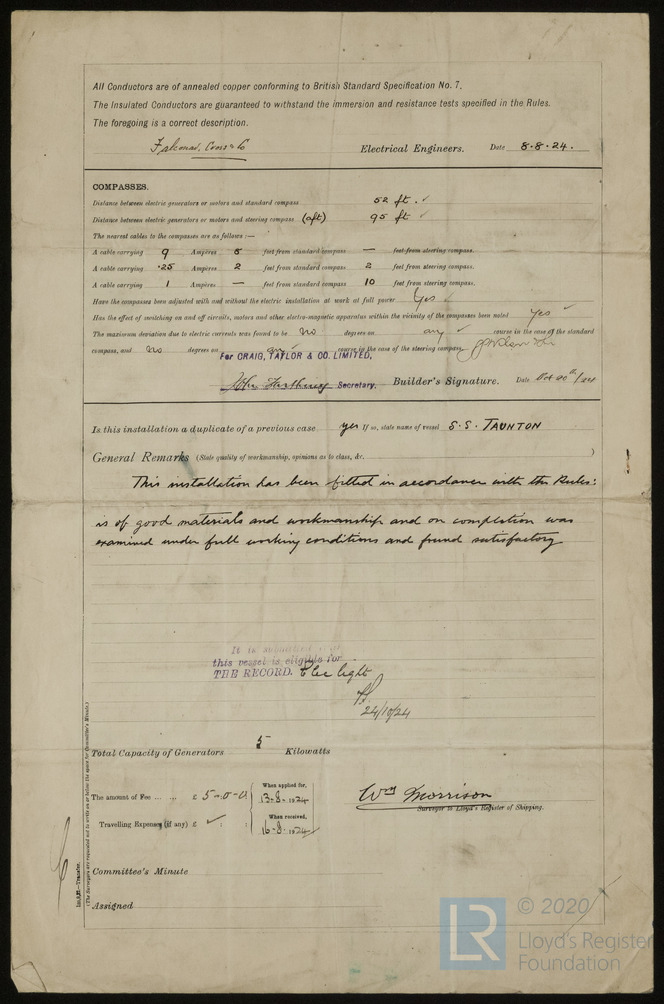 All Conductors are of annealed copper conforming to British Standard Specification No. 7.
The Insulated Conductors are guaranteed to withstand the immersion and resistance tests specified in the Rules.
The foregoing is a correct description.
Falconar, Cross & Co Electrical Engineers. Date 8.8.24.
COMPASSES.
Distance between electric generators or motors and standard compass 52 ft. ✓
Distance between electric generators or motors and steering compass (aft) 95 ft ✓
The nearest cables to the compasses are as follows:—
A cable carrying 9 Ampères 5 feet from standard compass — feet from steering compass.
A cable carrying .25 Ampères 2 feet from standard compass 2 feet from steering compass.
A cable carrying 1 Ampères — feet from standard compass 10 feet from steering compass.
Have the compasses been adjusted with and without the electric installation at work at full power Yes
Has the effect of switching on and off circuits, motors and other electro-magnetic apparatus within the vicinity of the compasses been noted Yes ✓
The maximum deviation due to electric currents was found to be No degrees on any ✓ course in the case of the standard
compass, and No degrees on any course in the case of the steering compass.
For CRAIG, TAYLOR & CO. LIMITED,
Secretary. Builder's Signature. Date Oct 20th/24
Is this installation a duplicate of a previous case yes If so, state name of vessel S.S. TAUNTON
General Remarks (State quality of workmanship, opinions as to class, &c. )
This installation has been fitted in accordance with the Rules:
is of good materials and workmanship and on completion was
examined under full working conditions and found satisfactory
It is submitted that
this vessel is eligible for
THE RECORD. Elec light
24/10/24
Total Capacity of Generators 5 Kilowatts
The amount of Fee ... ... £ 5-0-0 When applied for, 13.8.1924
Travelling Expenses (if any) £ ✓ : : When received, 16.8.1924
Wm Morrison
Surveyor to Lloyd's Register of Shipping.
Committee's Minute
Assigned
(The Surveyors are requested not to write on or below the space for Committee's Minute.)
LR © 2020
Lloyd's Register
Foundation